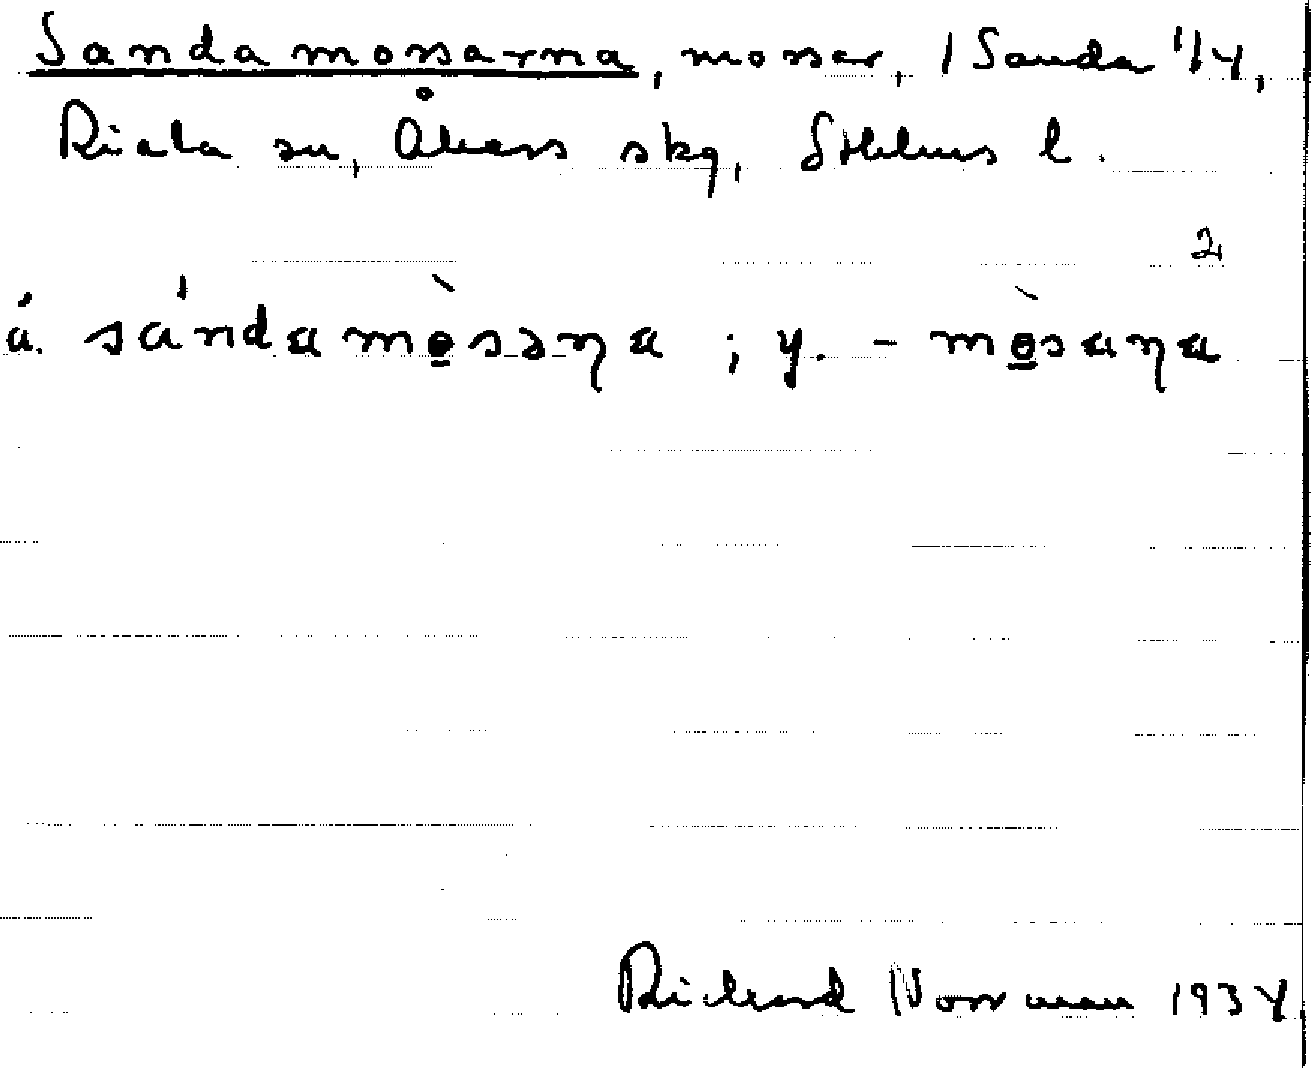 Sandamossarna, mossar, i Sanda 1/4,
Riala sn, Åkers skg, Sthlms l.
2
ä. sándamòsəɳa ; y. - mòsaɳa
Richard Norrman 1934